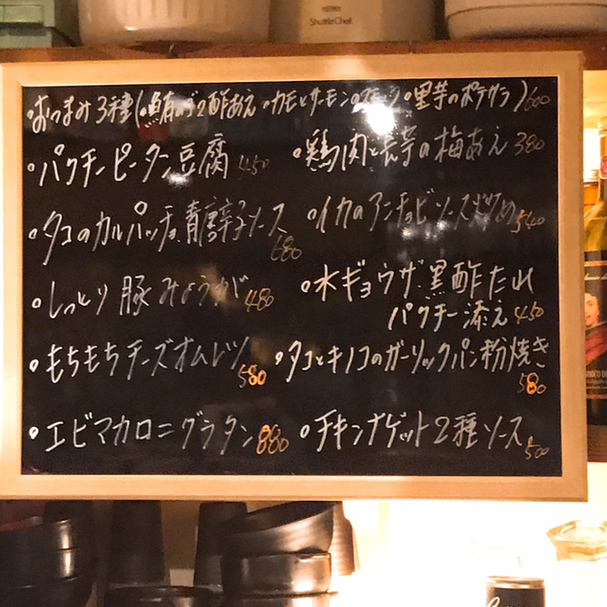 ShuttleChef
・おつまみ3種(・鮪の2酢あえ・カモとサーモンの・里芋のポテサラ)600
・パクチーピータン豆腐 450
・鶏肉と長芋の梅あえ 380
・タコのカルパッチョ青唐辛子ソース 680
・イカのアンチョビソース炒め 540
・しっとり豚みょうが 480
・水ギョウザ黒酢たれ
パクチー添え 450
・もちもちチーズオムレツ 580
・タコとキノコのガーリックパン粉焼き
580
・エビマカロニグラタン 880
・チキンナゲット2種ソース 500